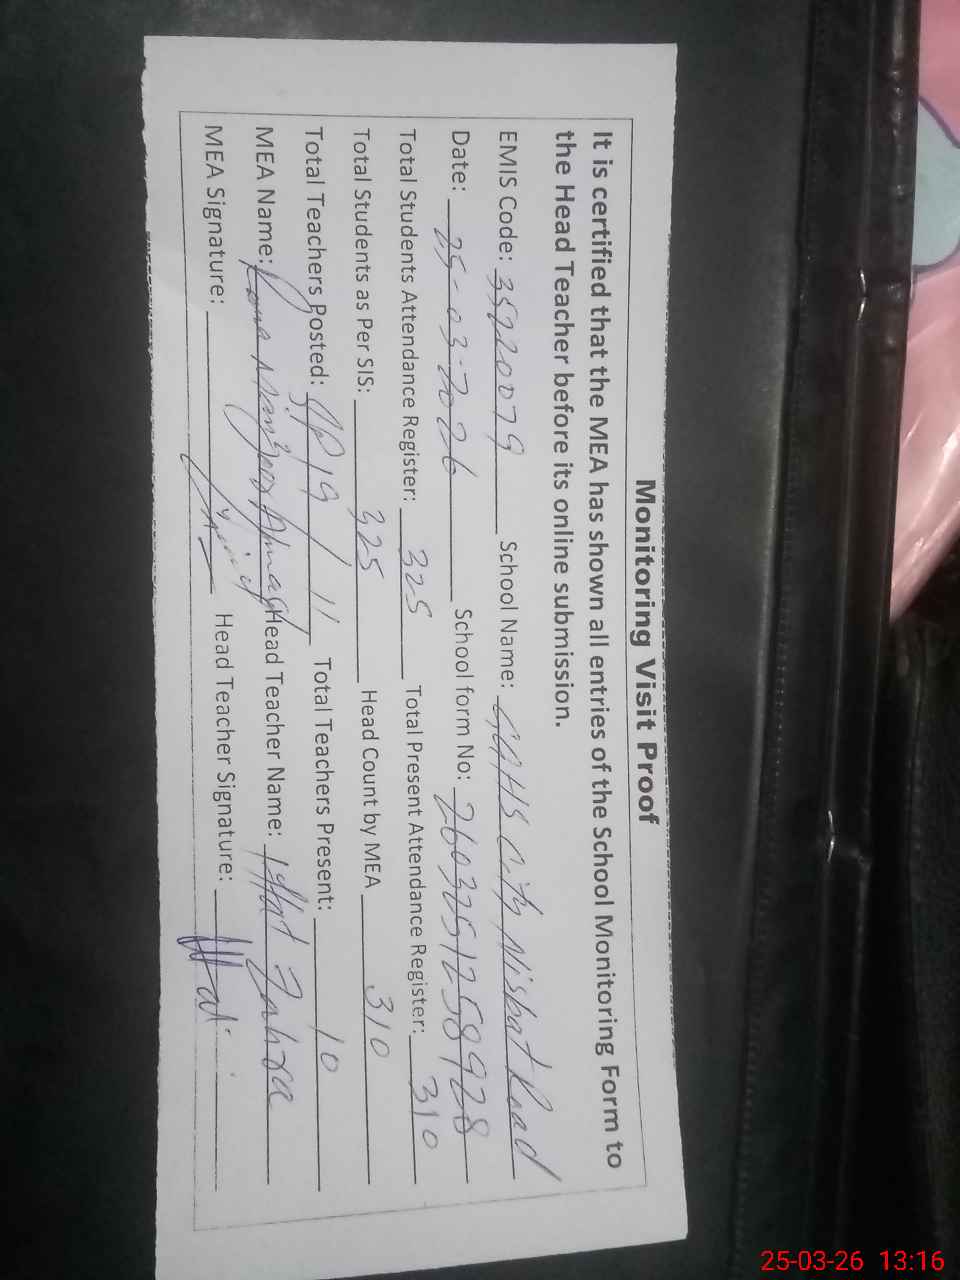 Monitoring Visit Proof
It is certified that the MEA has shown all entries of the School Monitoring Form to
the Head Teacher before its online submission.
EMIS Code: 35920079 School Name: GAHS City Nisbat Road
Date: 25-03-2026 School form No: 2603251258928
Total Students Attendance Register: 325 Total Present Attendance Register: 310
Total Students as Per SIS: 325 Head Count by MEA 310
Total Teachers Posted: 19 / 11 Total Teachers Present: 10
MEA Name: Rana Head Teacher Name: Iffat Zahra
MEA Signature: Head Teacher Signature:
25-03-26 13:16